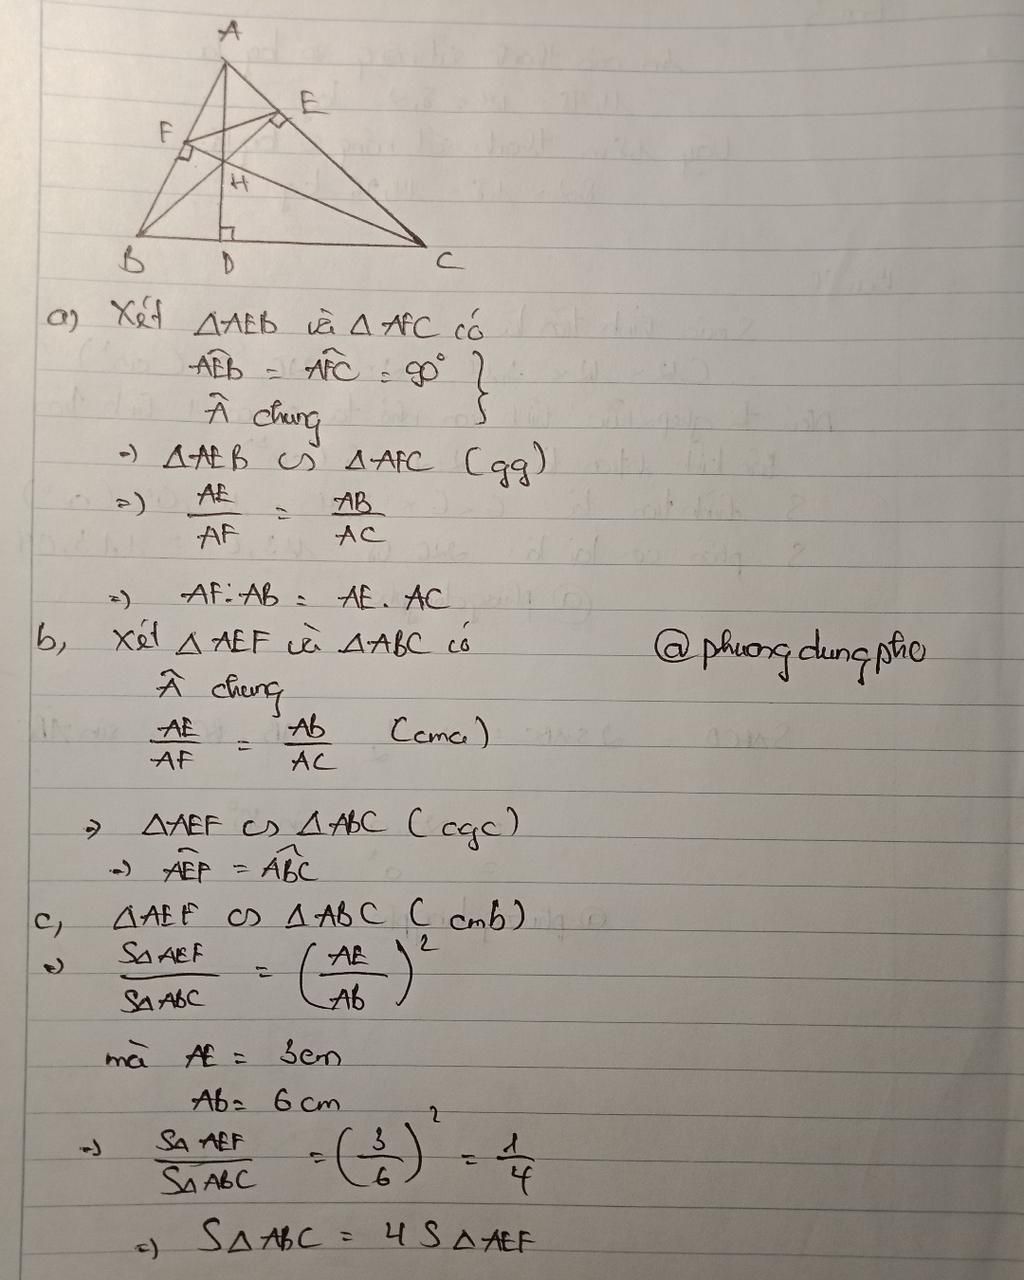 A
E
F
H
B D C
a) Xét ΔAEB và ΔAFC có
AÊB = AF̂C = 90° }
Â chung
=) ΔAEB ∽ ΔAFC (gg)
=) AE/AF = AB/AC
=) AF.AB = AE.AC
b, Xét ΔAEF và ΔABC có
@phuongdungpho
Â chung
AE/AF = AB/AC (cma)
=> ΔAEF ∽ ΔABC (cgc)
=) AÊF = AB̂C
c, ΔAEF ∽ ΔABC (cmb)
=) SΔAEF/SΔABC = (AE/AB)²
mà AE = 3cm
AB = 6cm
=) SΔAEF/SΔABC = (3/6)² = 1/4
=) SΔABC = 4SΔAEF